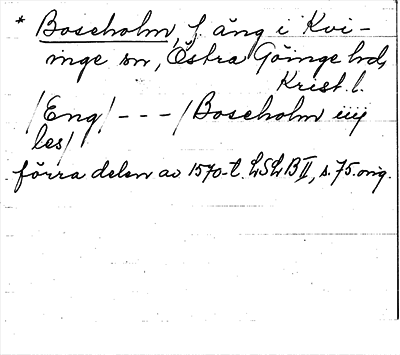 * Boseholm, f. äng i Kvi-
inge sn, Östra Göinge hd,
Krist. l.
/Eng/ - - - / Boseholm iiij
les/
förra delen av 1570-t. LSLB II, s. 75. orig.